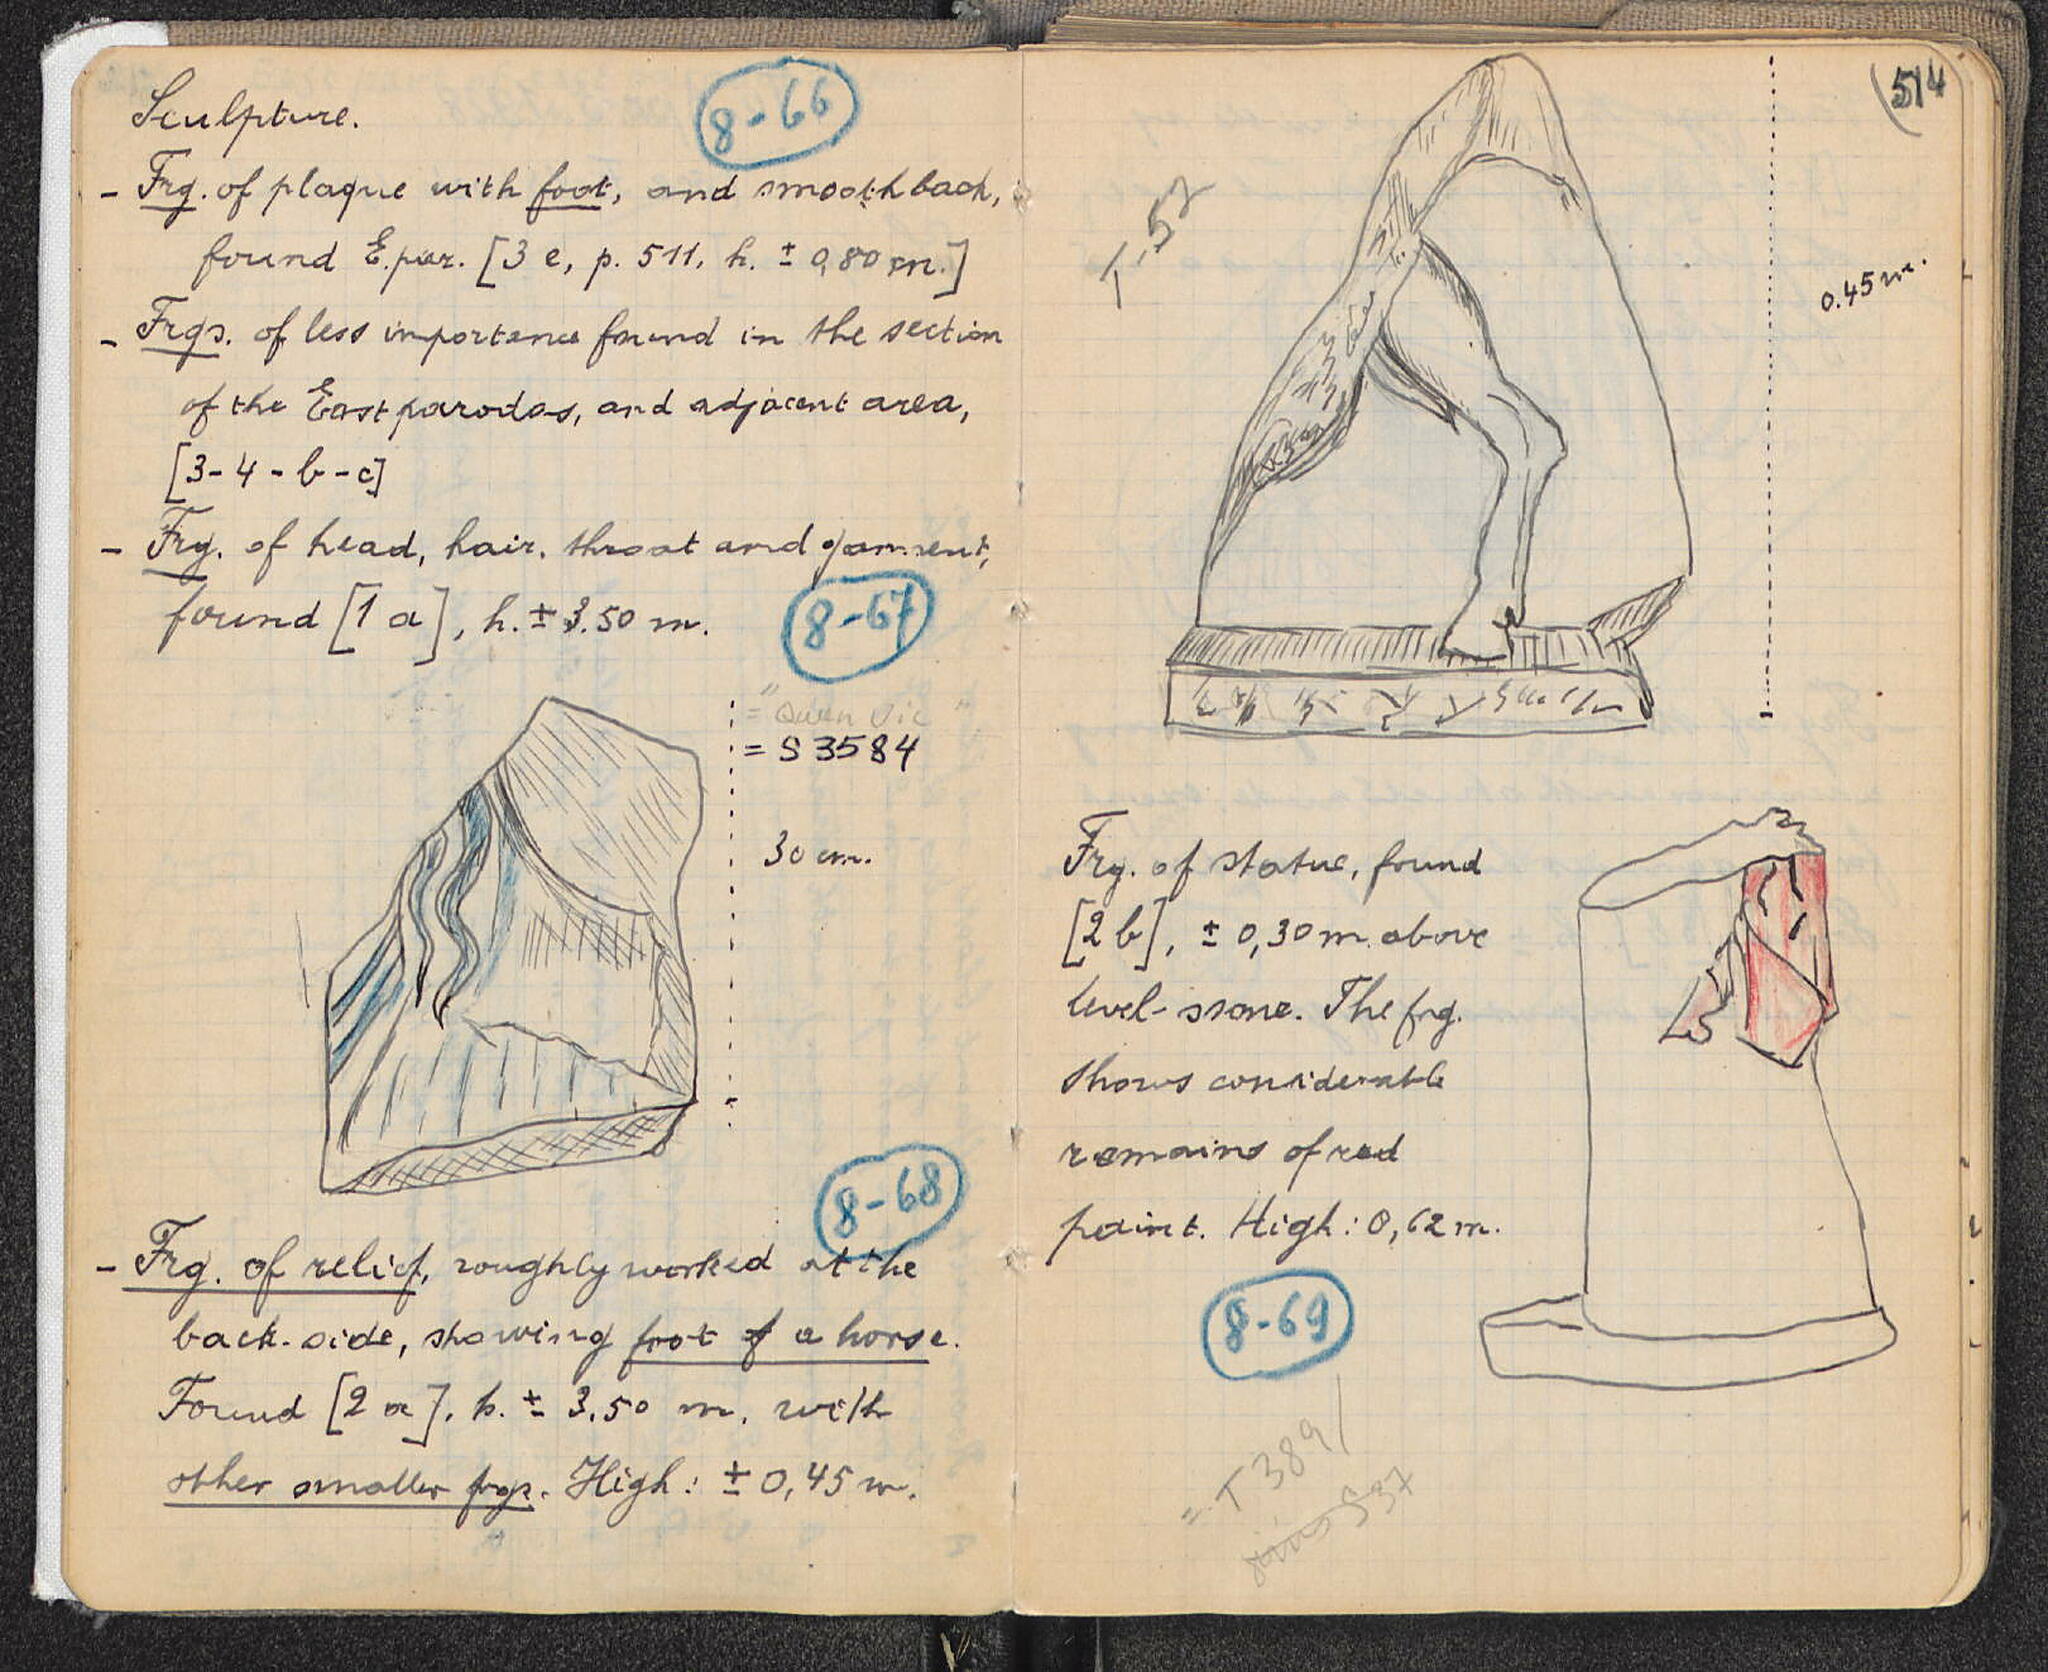 Sculpture.
8-66
- Frg. of plaque with foot, and smooth back,
found E. par. [3 e, p. 511, h. ± 0,80 m.]
- Frgs. of less importance found in the section
of the East parodos, and adjacent area,
[3-4-b-c]
- Frg. of head, hair, throat and garment,
found [1 a], h. ± 3.50 m.
8-67
= S 3584
30 cm.
8-68
- Frg. of relief, roughly worked at the
back-side, showing foot of a horse.
Found [2 a], h. ± 3.50 m. with
other smaller frgs. High: ± 0,45 m.
514
T-52
0.45 m.
Frg. of statue, found
[2 b], ± 0,30 m. above
level-stone. The frg.
shows considerable
remains of red
paint. High: 0,62 m.
8-69
= T 389/
S37